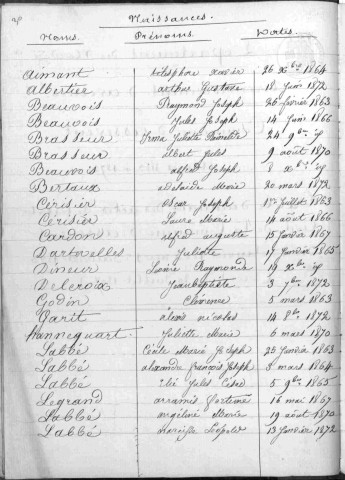 Naissances.
Noms. Prénoms. Dates.
Aimant télesphore xavier 26 Xbre 1864
Albertier arthur Gustave 18 Juin 1872
Beauvois Raymond Joseph 26 février 1863
Beauvois Jules Joseph 14 Juin 1866
Brasseur Irma Juliette 24 9bre id
Brasseur albert Jules 9 août 1870
Beauvois alfred Joseph 8 Xbre id
Bertaux adelaïde Marie 20 mars 1872
Cérisier oscar Joseph 1er Juillet 1863
Cerisier Laure Marie 14 août 1866
Cardon alfred auguste 15 Janvier 1867
Dartevelles Juliette 17 Janvier 1865
Dineur Raymonde 14 Xbre id
Delcroix Jean baptiste 3 7bre 1872
Godin Clémence 5 mars 1863
alexis nicolas 14 8bre 1872
Hannequart Juliette Marie 6 mars 1870
Labbé Cécile Marie Joseph 25 Janvier 1863
Labbé alexandre françois Joseph mars 1864
Labbé Jules César 5 9bre 1865
Legrand 16 mai 1867
Labbé angéline Marie 19 août 1870
Labbé narcisse Léopold 13 Janvier 1872